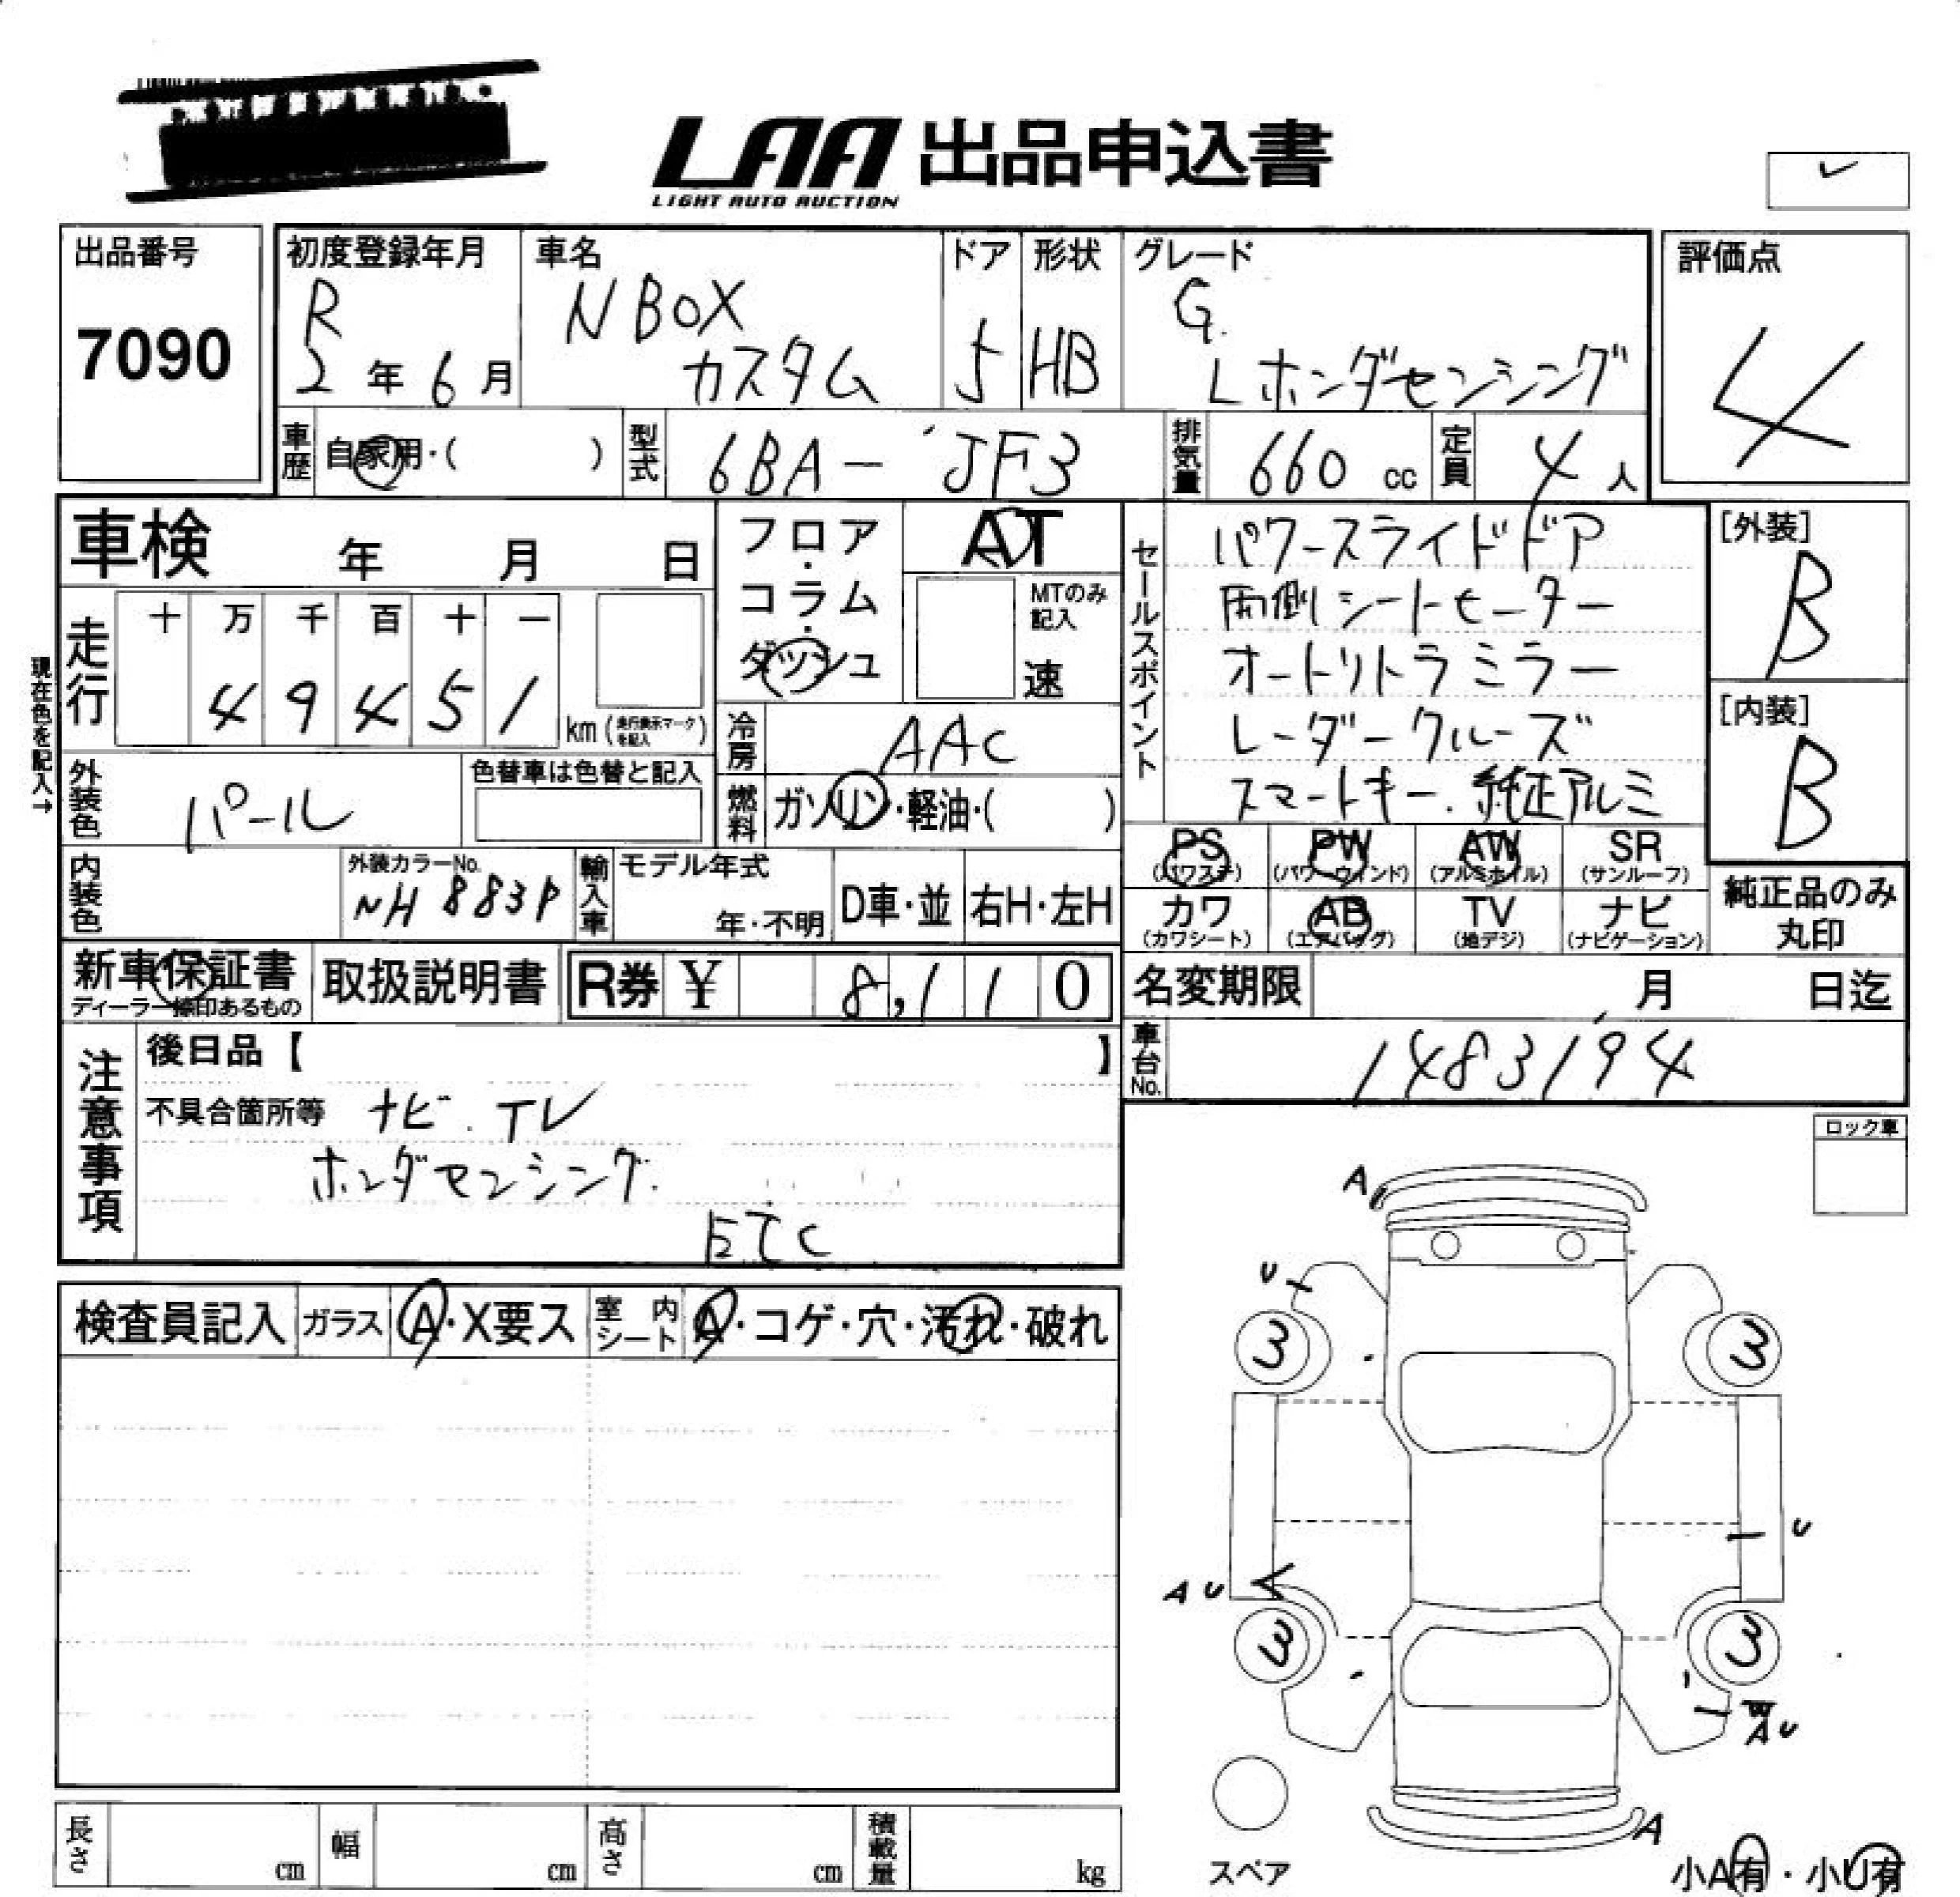 LAA 出品申込書
LIGHT AUTO AUCTION
出品番号
7090
初度登録年月
R
2年6月
車名
N BOX
カスタム
ドア
5
形状
HB
グレード
G.
Lホンダセンシング
評価点
4
車歴
自家用・( )
型式
6BA-JF3
排気量
660 cc
定員
4人
車検 年 月 日
フロア・コラム・ダッシュ
AT
MTのみ記入
速
現在色を記入→
走行
十 万 千 百 十 一
4 9 4 5 1
km (走行表示マークを記入)
冷房
AAC
外装色
パール
色替車は色替と記入
燃料
ガソリン・軽油・( )
内装色
外装カラーNo.
NH 883P
輸入車
モデル年式
年・不明
D車・並
右H・左H
セールスポイント
パワースライドドア
両側シートヒーター
オートリトラミラー
レーダークルーズ
スマートキー.純正アルミ
[外装]
B
[内装]
B
PS (パワステ)
PW (パワーウィンド)
AW (アルミホイル)
SR (サンルーフ)
カワ (カワシート)
AB (エアバッグ)
TV (地デジ)
ナビ (ナビゲーション)
純正品のみ
丸印
新車保証書
ディーラー捺印あるもの
取扱説明書
R券 ¥ 8,110
名変期限 月 日迄
車台No.
1483194
注意事項
後日品【 】
不具合箇所等 ナビ.TV
ホンダセンシング.
ETC
ロック車
検査員記入
ガラス
A・X要ス
室内シート
A・コゲ・穴・汚れ・破れ
A
U
3
3
U
A U
3
3
W
A U
A
スペア
小A有・小U有
長さ cm
幅 cm
高さ cm
積載量 kg